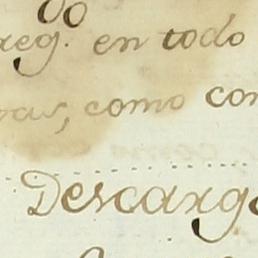 reg. en todo
como con
Descarg